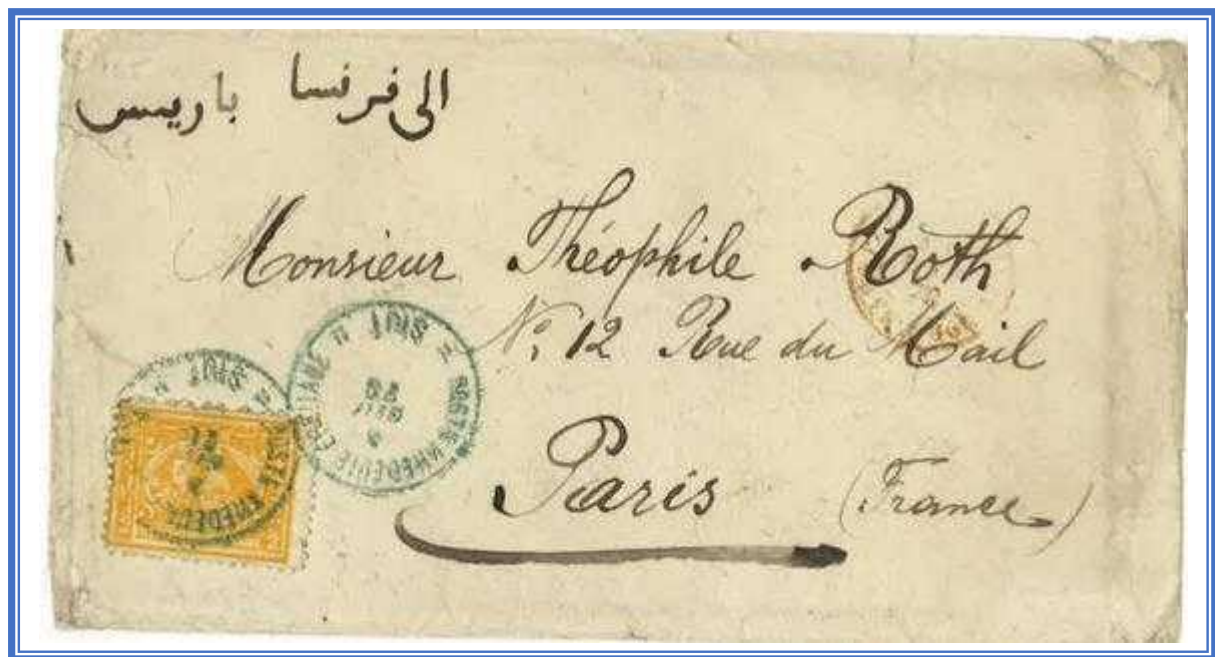 الى فرنسا باريس
Monsieur Théophile Roth
No. 12 Rue du Mail
Paris (France)
POSTE KHEDEUIE EGIZIANE
SIUT